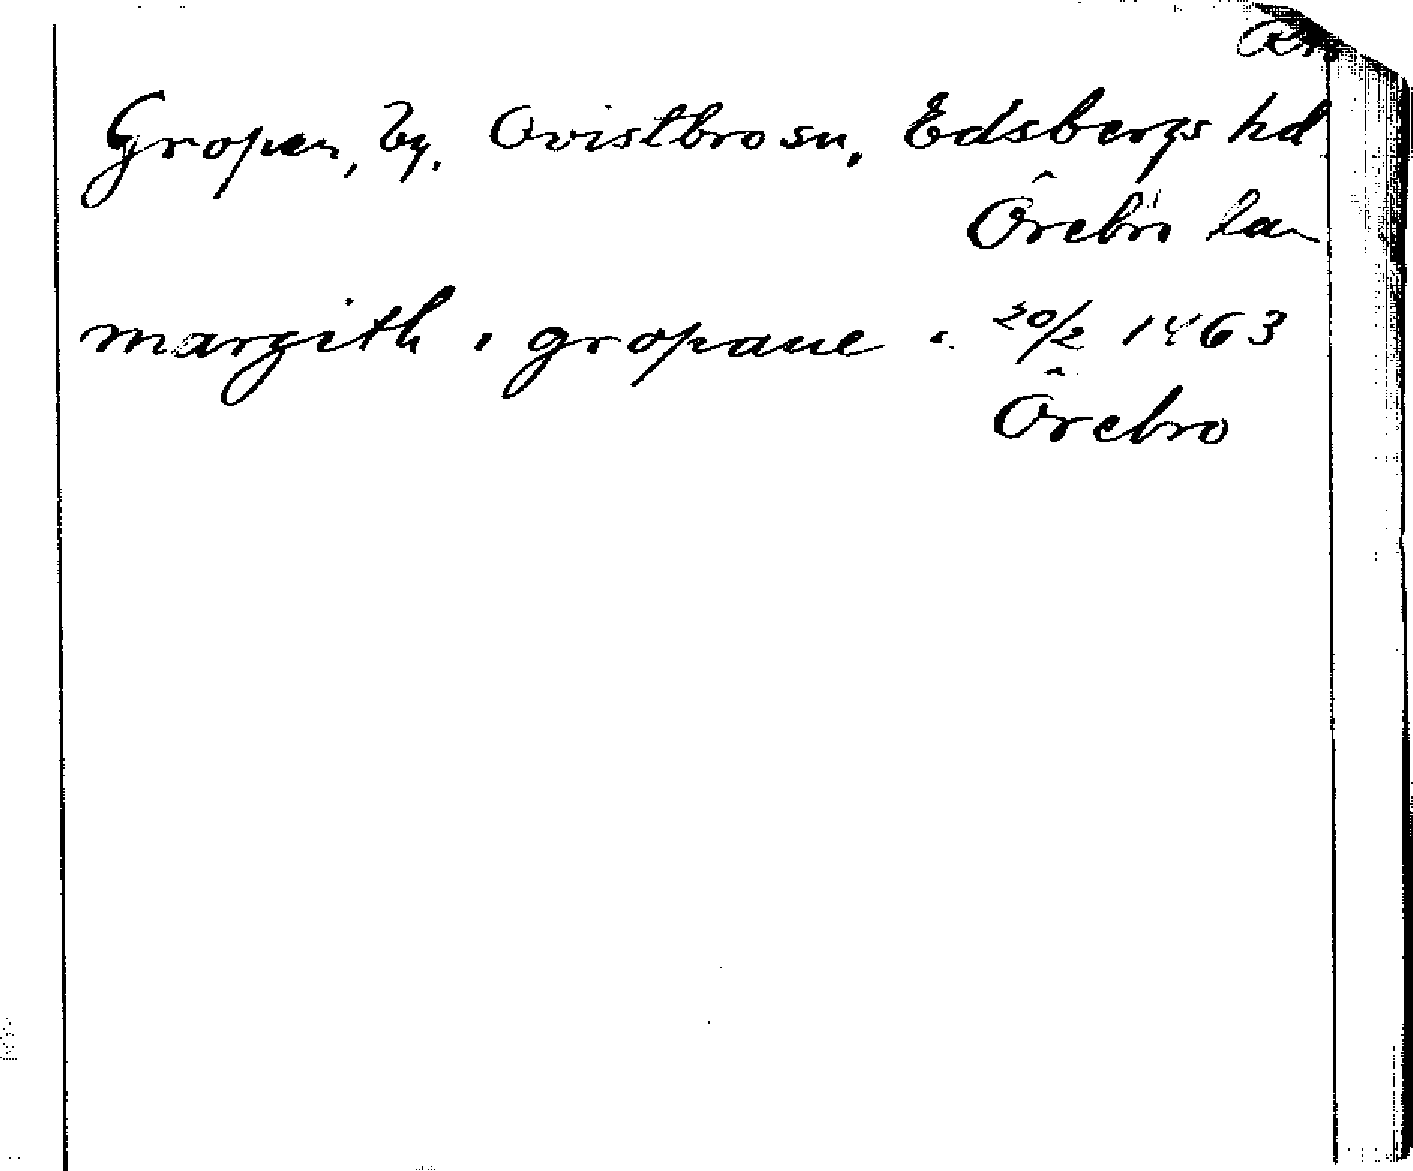 Gropen, by. Qvistbro sn, Edsbergs hd
Örebro län
margith i gropane. 20/2 1463
Örebro